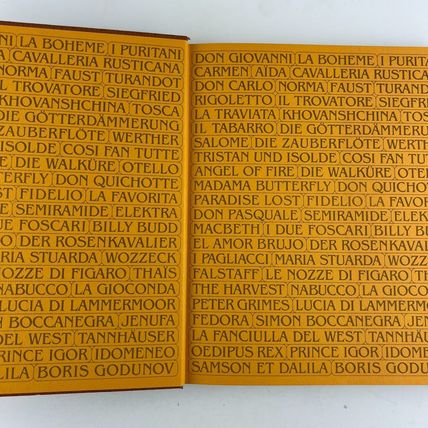 NI LA BOHEME I PURITANI
A CAVALLERIA RUSTICANA
NORMA FAUST TURANDOT
IL TROVATORE SIEGFRIED
KHOVANSHCHINA TOSCA
DIE GÖTTERDÄMMERUNG
ZAUBERFLÖTE WERTHER
ISOLDE COSI FAN TUTTE
DIE WALKÜRE OTELLO
ERFLY DON QUICHOTTE
ST FIDELIO LA FAVORITA
SEMIRAMIDE ELEKTRA
UE FOSCARI BILLY BUDD
O DER ROSENKAVALIER
RIA STUARDA WOZZECK
NOZZE DI FIGARO THAÏS
NABUCCO LA GIOCONDA
LUCIA DI LAMMERMOOR
N BOCCANEGRA JENUFA
DEL WEST TANNHÄUSER
PRINCE IGOR IDOMENEO
LILA BORIS GODUNOV
DON GIOVANNI LA BOHEME I PURITANI
CARMEN AÏDA CAVALLERIA RUSTICA
DON CARLO NORMA FAUST TURAND
RIGOLETTO IL TROVATORE SIEGFR
LA TRAVIATA KHOVANSHCHINA TOS
IL TABARRO DIE GÖTTERDÄMMERU
SALOME DIE ZAUBERFLÖTE WERTH
TRISTAN UND ISOLDE COSI FAN TUT
ANGEL OF FIRE DIE WALKÜRE OTEL
MADAMA BUTTERFLY DON QUICHO
PARADISE LOST FIDELIO LA FAVOR
DON PASQUALE SEMIRAMIDE ELEK
MACBETH I DUE FOSCARI BILLY BU
EL AMOR BRUJO DER ROSENKAVAL
I PAGLIACCI MARIA STUARDA WOZZ
FALSTAFF LE NOZZE DI FIGARO TH
THE HARVEST NABUCCO LA GIOCO
PETER GRIMES LUCIA DI LAMMERM
FEDORA SIMON BOCCANEGRA JEN
LA FANCIULLA DEL WEST TANNHÄU
OEDIPUS REX PRINCE IGOR IDOM
SAMSON ET DALILA BORIS GODU